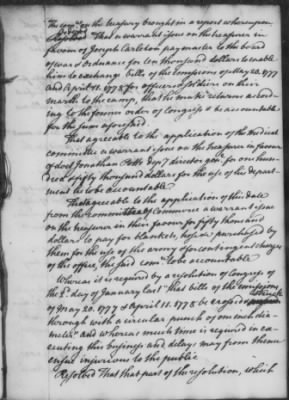 The comee. on the treasury brought in a report whereupon
Resolved That a warrant issue on the treasurer in
favour of Joseph Carleton pay master to the board
of war & Ordnance for ten thousand dollars to enable
him to exchange bills of the emissions of May 20. 1777
and April 11. 1778 for officers & soldiers on their
march to the camp, that he make returns accord
ing to the former order of Congress & be accountable
for the sum aforesaid.
That agreeable to the application of the medical
committee a warrant issue on the treasurer in favour
of doct Jonathan Potts dpy director genl. for one hun
dred & fifty thousand dollars for the use of the depart
ment he to be accountable
That agreeable to application of this date
from the committee of Commerce a warrant issue
on the treasurer in their favour for fifty thousand
dollars to pay for blankets, hose &c purchased by
them for the use of the army & for contingent charges
of the office, the said comee. to be accountable
Whereas it is required by a resolution of Congress of
the 2d. day of January last that bills of the emissions
of May 20. 1777 & April 11. 1778 be crossed & struck
through with a circular punch of one inch dia-
meter and whereas much time is required in exe
cuting this business and delays may from thence
ensue injurious to the public
Resolved That that part of the resolution, which